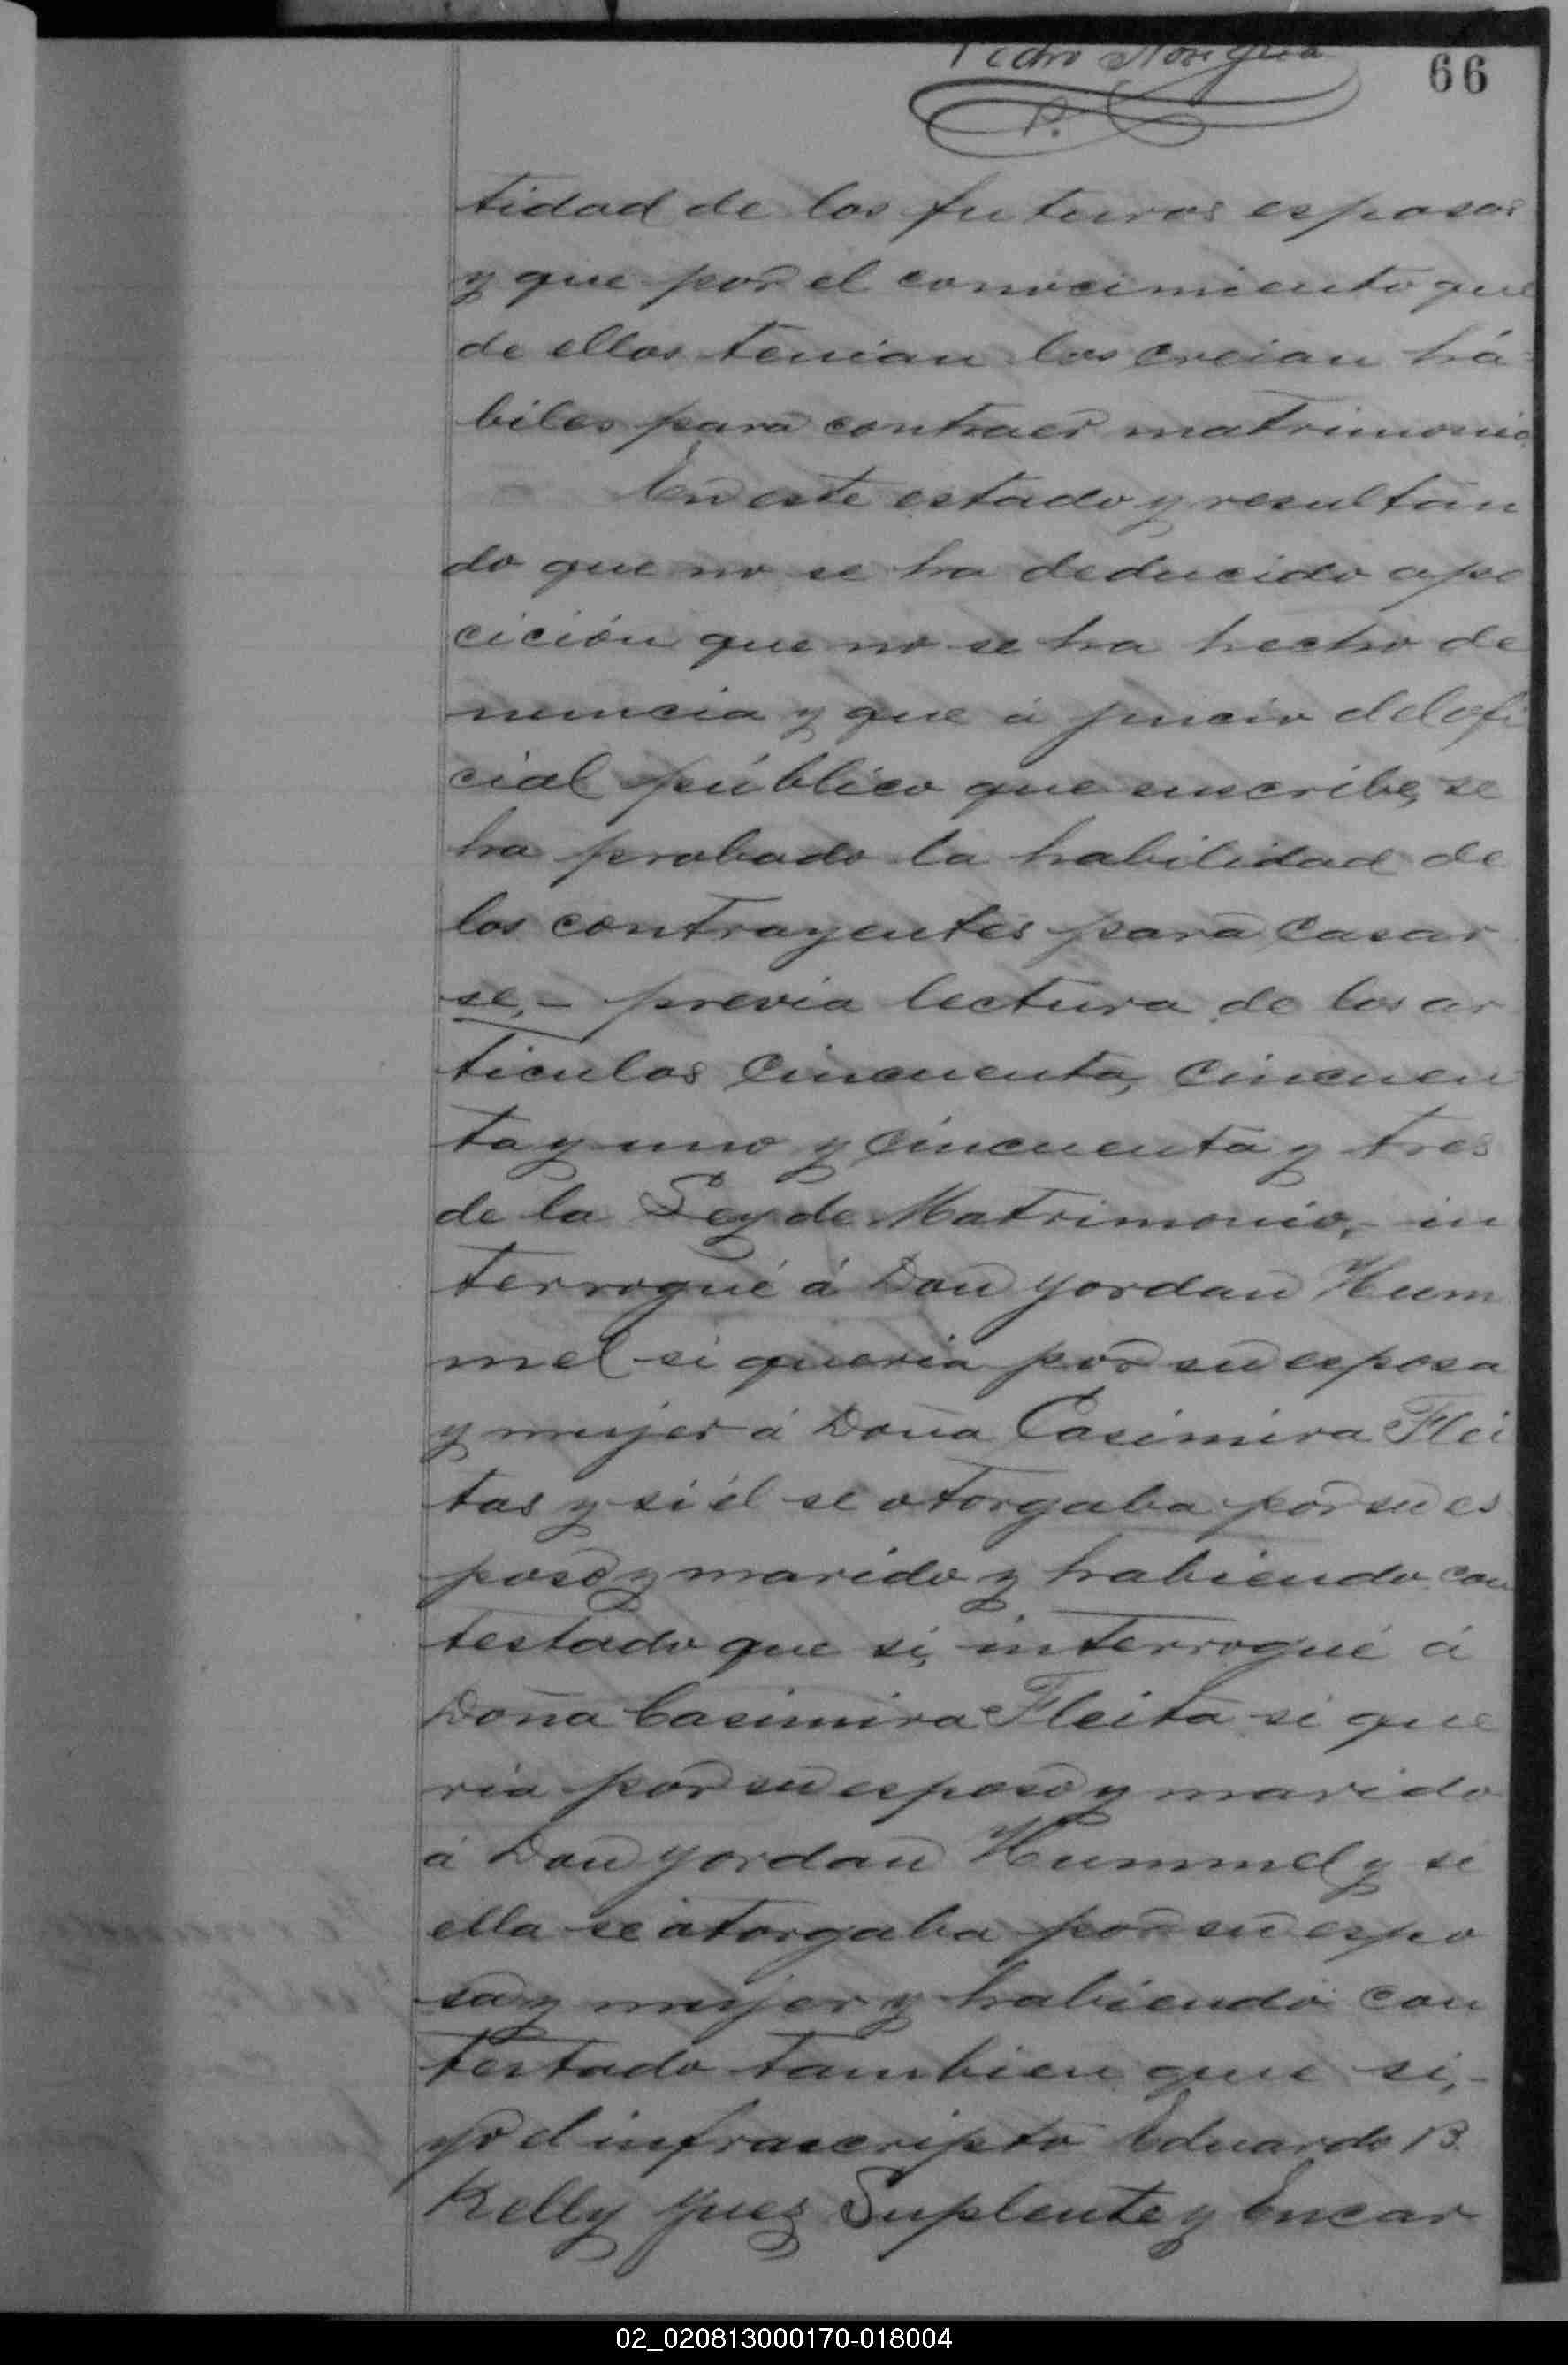 Pedro Noriega
66
P.
tidad de los futuros esposos
y que por el conocimiento que
de ellos tenian los creian há-
biles para contraer matrimonio.
En este estado y resultan
do que no se ha deducido opo
cición que no se ha hecho de
nuncia y que á juicio del ofi
cial público que suscribe, se
ha probado la habilidad de
los contrayentes para casar
se,- previa lectura de los ar
ticulos cincuenta, cincuen
ta y uno y cincuenta y tres
de la Ley de Matrimonio,- in
terrogué á Don Yordan Hum
mel si queria por su esposa
y mujer á Doña Casimira Flei
tas y si él se otorgaba por su es
poso y marido y habiendo con
testado que si, interrogué á
Doña Casimira Fleita si que
ria por su esposo y marido
á Don Yordan Hummel y si
ella se otorgaba por su espo
sa y mujer y habiendo con
testado tambien que si,-
yo el infrascripto Eduardo B.
Kelly Juez Suplente y Encar
02_020813000170-018004